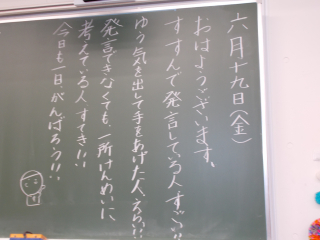 六月十九日(金)
おはようございます。
すすんで発言している人、すごい!!
ゆう気を出して手をあげた人、えらい!!
発言できなくても、一所けんめいに
考えている人すてき!!
今日も一日、がんばろう!!